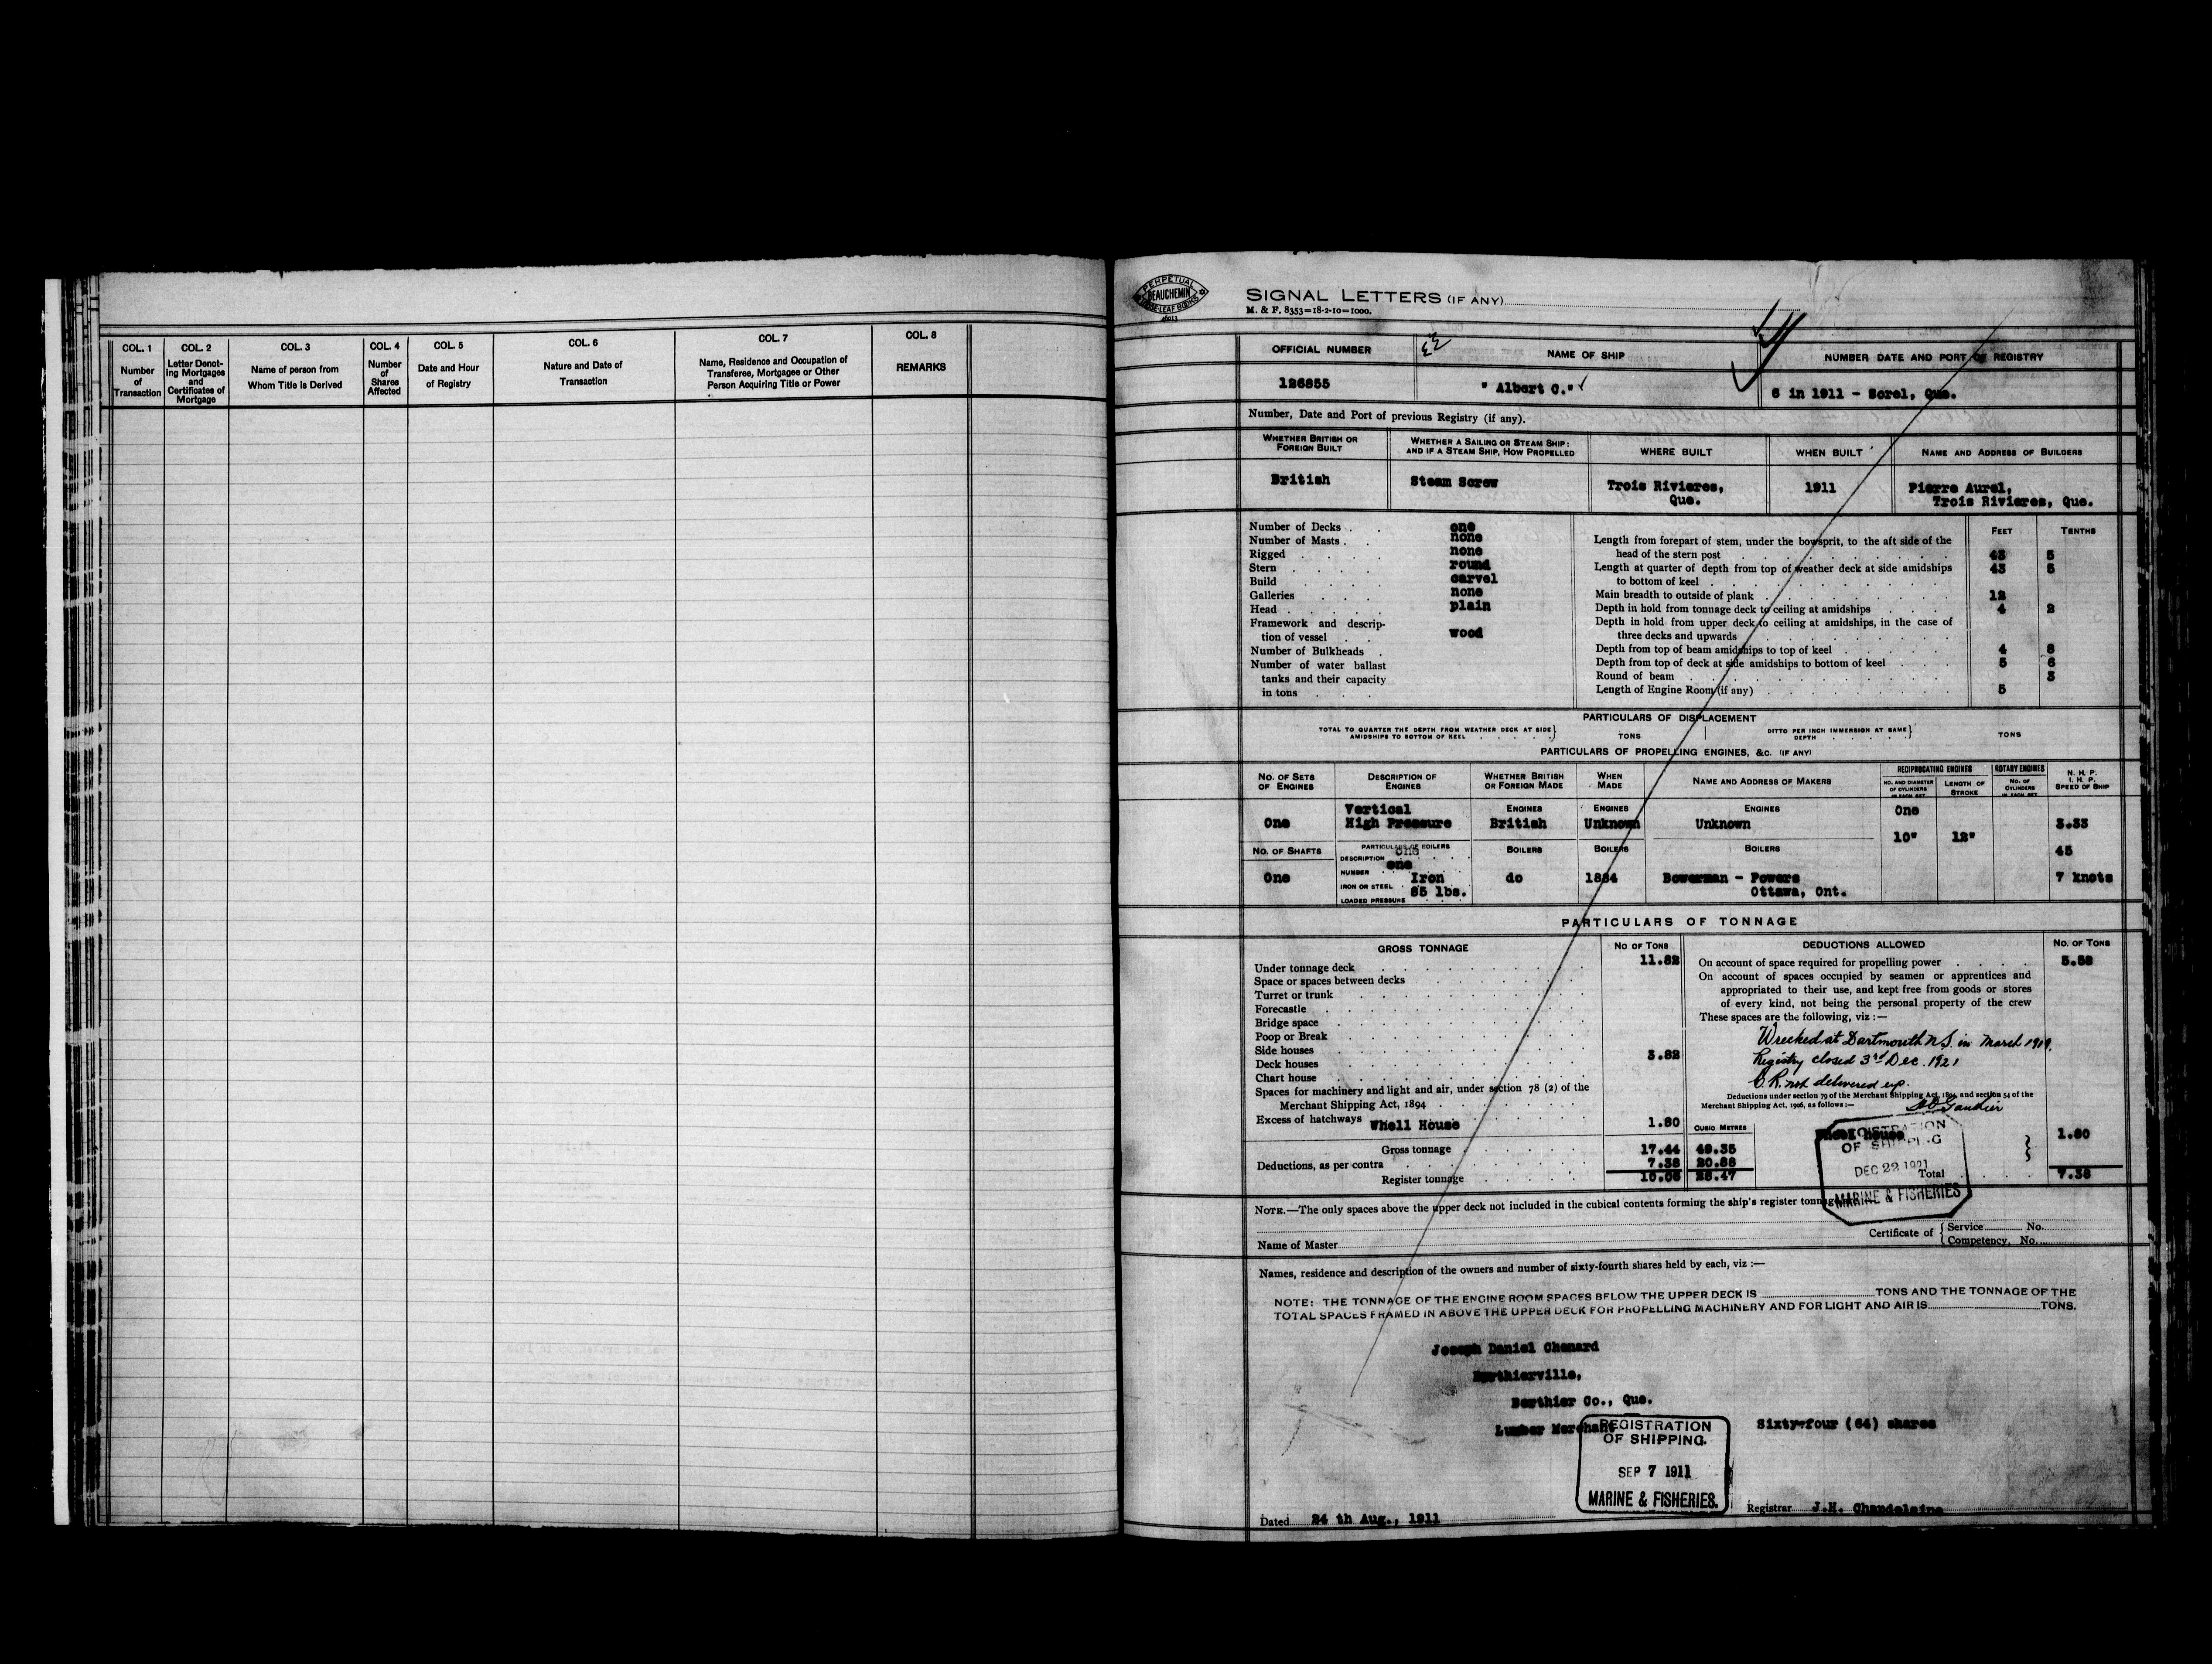 COL. 1
Number
of
Transaction
COL. 2
Letter Denot-
ing Mortgages
and
Certificates of
Mortgage
COL. 3
Name of person from
Whom Title is Derived
COL. 4
Number
of
Shares
Affected
COL. 5
Date and Hour
of Registry
COL. 6
Nature and Date of
Transaction
COL. 7
Name, Residence and Occupation of
Transferee, Mortgagee or Other
Person Acquiring Title or Power
COL. 8
REMARKS
PERPETUAL
BEAUCHEMIN
LOOSE-LEAF BOOKS
SIGNAL LETTERS (IF ANY)
M. & F. 8353=18-2-10=1000.
OFFICIAL NUMBER
NAME OF SHIP
NUMBER DATE AND PORT OF REGISTRY
126855
" Albert C."
6 in 1911 - Sorel, Que.
Number, Date and Port of previous Registry (if any).
WHETHER BRITISH OR
FOREIGN BUILT
WHETHER A SAILING OR STEAM SHIP:
AND IF A STEAM SHIP, HOW PROPELLED
WHERE BUILT
WHEN BUILT
NAME AND ADDRESS OF BUILDERS
British
Steam Screw
Trois Rivieres,
Que.
1911
Pierre Aurel,
Trois Rivieres, Que.
Number of Decks . . one
Number of Masts . . none
Rigged . . . . none
Stern . . . . round
Build . . . . carvel
Galleries . . . none
Head . . . . plain
Framework and descrip-
tion of vessel . . wood
Number of Bulkheads .
Number of water ballast
tanks and their capacity
in tons . . .
FEET TENTHS
Length from forepart of stem, under the bowsprit, to the aft side of the
head of the stern post 43 5
Length at quarter of depth from top of weather deck at side amidships
to bottom of keel 43 5
Main breadth to outside of plank 12
Depth in hold from tonnage deck to ceiling at amidships 4 2
Depth in hold from upper deck to ceiling at amidships, in the case of
three decks and upwards
Depth from top of beam amidships to top of keel 4 8
Depth from top of deck at side amidships to bottom of keel 5 6
Round of beam 3
Length of Engine Room (if any) 5
PARTICULARS OF DISPLACEMENT
TOTAL TO QUARTER THE DEPTH FROM WEATHER DECK AT SIDE
AMIDSHIPS TO BOTTOM OF KEEL
TONS
DITTO PER INCH IMMERSION AT SAME
DEPTH
TONS
PARTICULARS OF PROPELLING ENGINES, &C. (IF ANY)
NO. OF SETS
OF ENGINES
DESCRIPTION OF
ENGINES
WHETHER BRITISH
OR FOREIGN MADE
WHEN
MADE
NAME AND ADDRESS OF MAKERS
RECIPROCATING ENGINES
NO. AND DIAMETER
OF CYLINDERS
IN EACH SET
LENGTH OF
STROKE
ROTARY ENGINES
NO. OF
CYLINDERS
IN EACH SET
N. H. P.
I. H. P.
SPEED OF SHIP
One
Vertical
High Pressure
ENGINES
British
ENGINES
Unknown
ENGINES
Unknown
One
10"
12"
3.33
45
7 knots
NO. OF SHAFTS
One
PARTICULARS OF BOILERS
one
DESCRIPTION
one
NUMBER
Iron
IRON OR STEEL
85 lbs.
LOADED PRESSURE
BOILERS
do
BOILERS
1884
BOILERS
Bowerman - Powers
Ottawa, Ont.
PARTICULARS OF TONNAGE
GROSS TONNAGE
NO OF TONS
Under tonnage deck 11.82
Space or spaces between decks
Turret or trunk
Forecastle
Bridge space
Poop or Break
Side houses 3.82
Deck houses
Chart house
Spaces for machinery and light and air, under section 78 (2) of the
Merchant Shipping Act, 1894
Excess of hatchways
Whell House 1.80
CUBIC METRES
Gross tonnage 17.44 49.35
Deductions, as per contra 7.38 20.88
Register tonnage 10.06 28.47
DEDUCTIONS ALLOWED
NO. OF TONS
On account of space required for propelling power 5.58
On account of spaces occupied by seamen or apprentices and
appropriated to their use, and kept free from goods or stores
of every kind, not being the personal property of the crew
These spaces are the following, viz :—
Wrecked at Dartmouth N.S. in March 1919.
Registry closed 3rd Dec. 1921
C.R. not delivered up.
Deductions under section 79 of the Merchant Shipping Act, 1894, and section 54 of the
Merchant Shipping Act, 1906, as follows :—
Wheel house 1.80
REGISTRATION
OF SHIPPING
DEC 22 1921
MARINE & FISHERIES
Total 7.38
NOTE.—The only spaces above the upper deck not included in the cubical contents forming the ship's register tonnage are
Name of Master
Certificate of
Service No.
Competency. No.
Names, residence and description of the owners and number of sixty-fourth shares held by each, viz :—
NOTE: THE TONNAGE OF THE ENGINE ROOM SPACES BELOW THE UPPER DECK IS TONS AND THE TONNAGE OF THE
TOTAL SPACES FRAMED IN ABOVE THE UPPER DECK FOR PROPELLING MACHINERY AND FOR LIGHT AND AIR IS TONS.
Joseph Daniel Chenard
Berthierville,
Berthier Co., Que.
Lumber Merchant
Sixty-four (64) shares
REGISTRATION
OF SHIPPING.
SEP 7 1911
MARINE & FISHERIES.
Dated 24 th Aug., 1911
Registrar J.H. Chandelaine